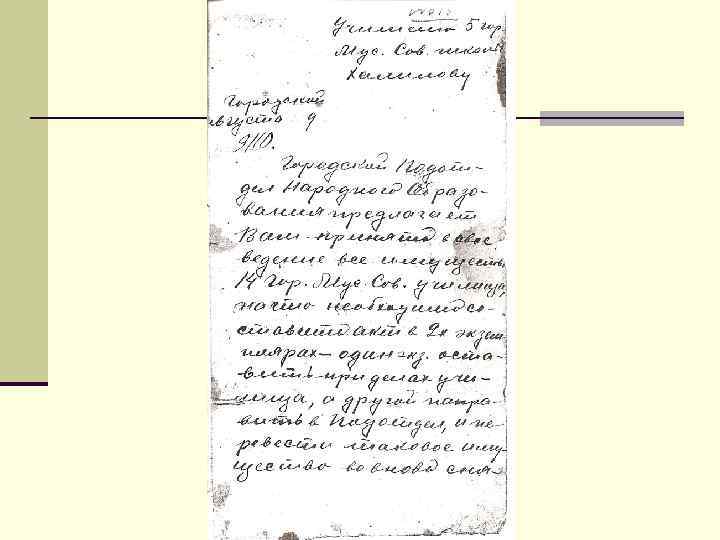 Училищю 5 гор.
Мус. Сов. школы
Халилову
Городской
августа 9
910.
Городской Подот-
дел Народного Образо-
вания предлагает
Вам принять в свое
ведение все имущество
14 Гор. Мус. Сов. училища,
на что необходимо со-
ставить акт в 2х экзем-
плярах – один экз. оста-
вить при делах учи-
лища, а другой напра-
вить в Подотдел, и пе-
ревести таковое иму-
щество во вновь сня-